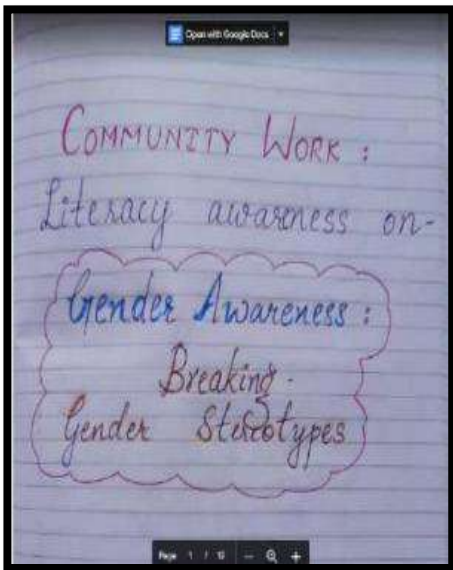 Open with Google Docs
COMMUNITY WORK :
Literacy awareness on-
Gender Awareness :
Breaking
Gender Stereotypes
Page 1 /